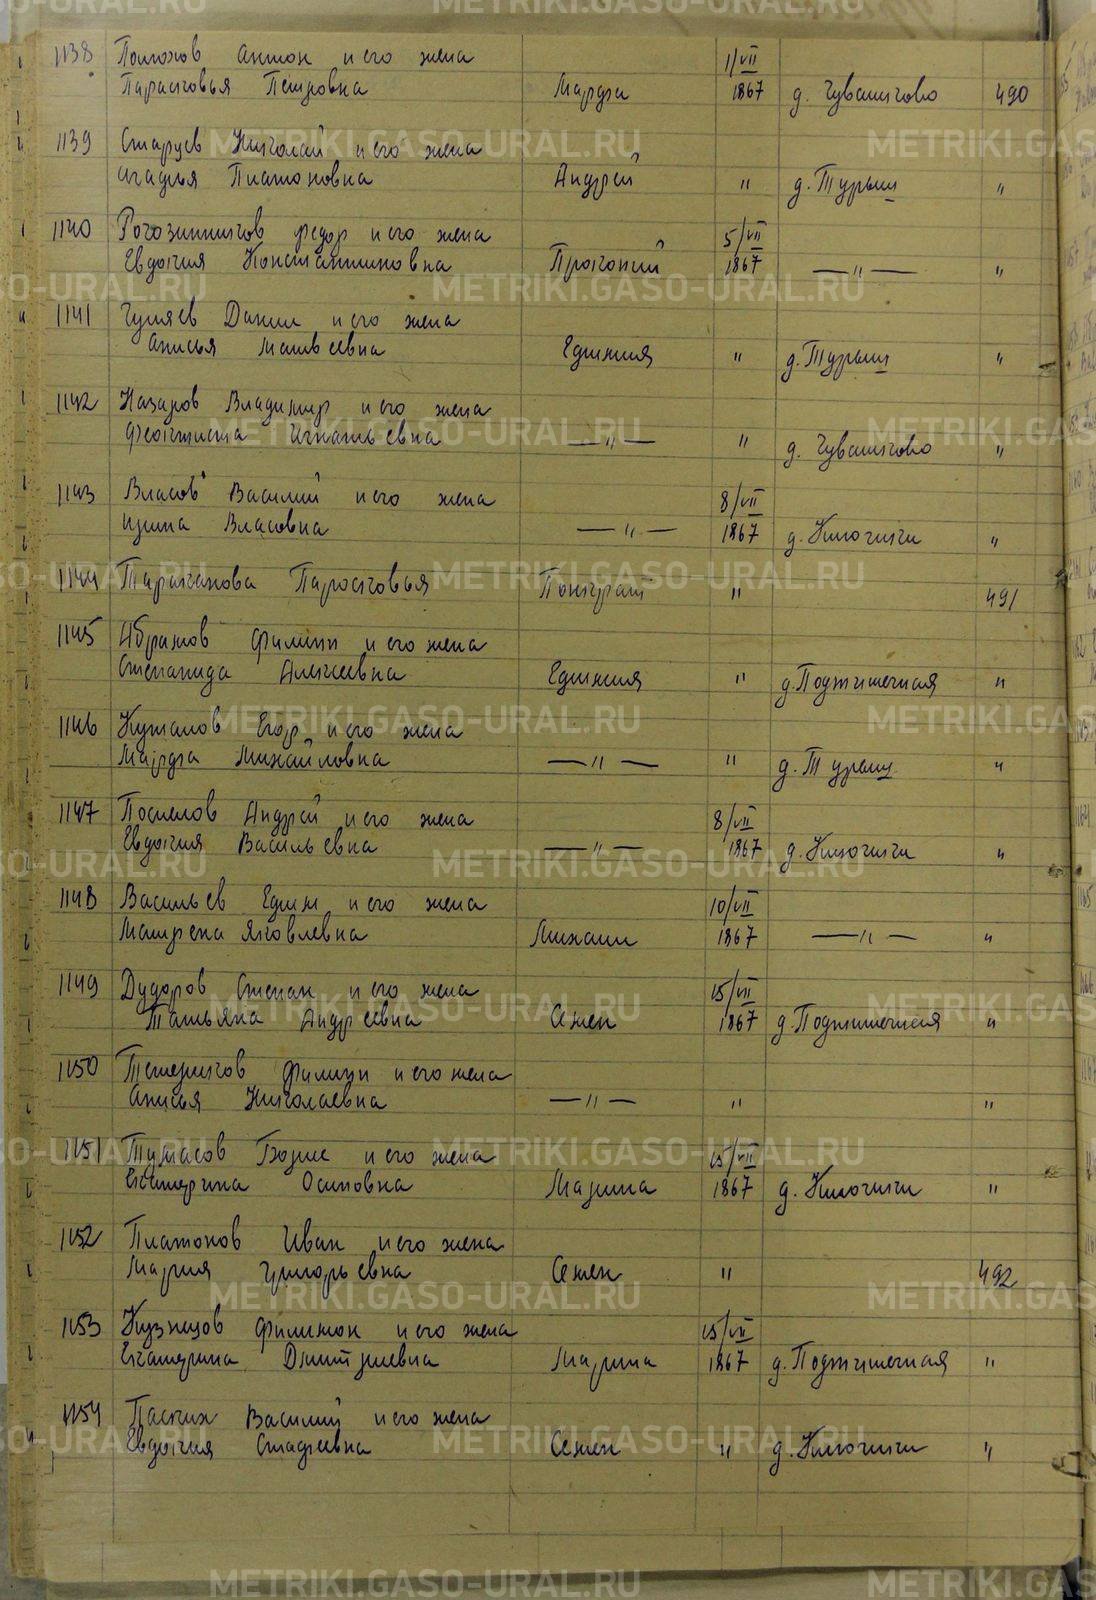 1138 Полозов Антон и его жена 1/VII
Парасковья Петровна Марфа 1867 д. Чувашково 490
1139 Старцев Николай и его жена
Агафья Платоновка Андрей " д. Турыш "
1140 Рогозинников Федор и его жена 5/VII
Евдокия Константиновна Прокопий 1867 —"— "
1141 Гуляев Данил и его жена
Анисья Матвеевна Ефимия " д. Турыш "
1142 Назаров Владимир и его жена
Феоктиста Игнатьевна —"— " д. Чувашково "
1143 Власов Василий и его жена 8/VII
Ирина Власовна —"— 1867 д. Ключики "
1144 Тараканова Парасковья Понкрат " 491
1145 Абрамов Филипп и его жена
Степанида Алексеевна Ефимия " д. Подгишечная "
1146 Егор и его жена
Марфа Михайловна —"— " д. Турыш "
1147 Поспелов Андрей и его жена 8/VII
Евдокия Васильевна —"— 1867 д. Ключики "
1148 Васильев Ефим и его жена 10/VII
Матрена Яковлевна Михаил 1867 —"— "
1149 Дударов Степан и его жена 15/VII
Татьяна Андреевна Семен 1867 д. "
1150 Тетериков Филипп и его жена
Анисья Николаевна —"— " "
1151 Тумасов Борис и его жена 15/VII
Екатерина Осиповна Марина 1867 д. Ключики "
1152 Платонов Иван и его жена
Мария Григорьевна Семен " 492
1153 Кузнецов Филимон и его жена 15/VII
Екатерина Дмитриевна Марина 1867 д. "
1154 Василий и его жена
Евдокия Семен " д. Ключики "
METRIKI.GASO-URAL.RU